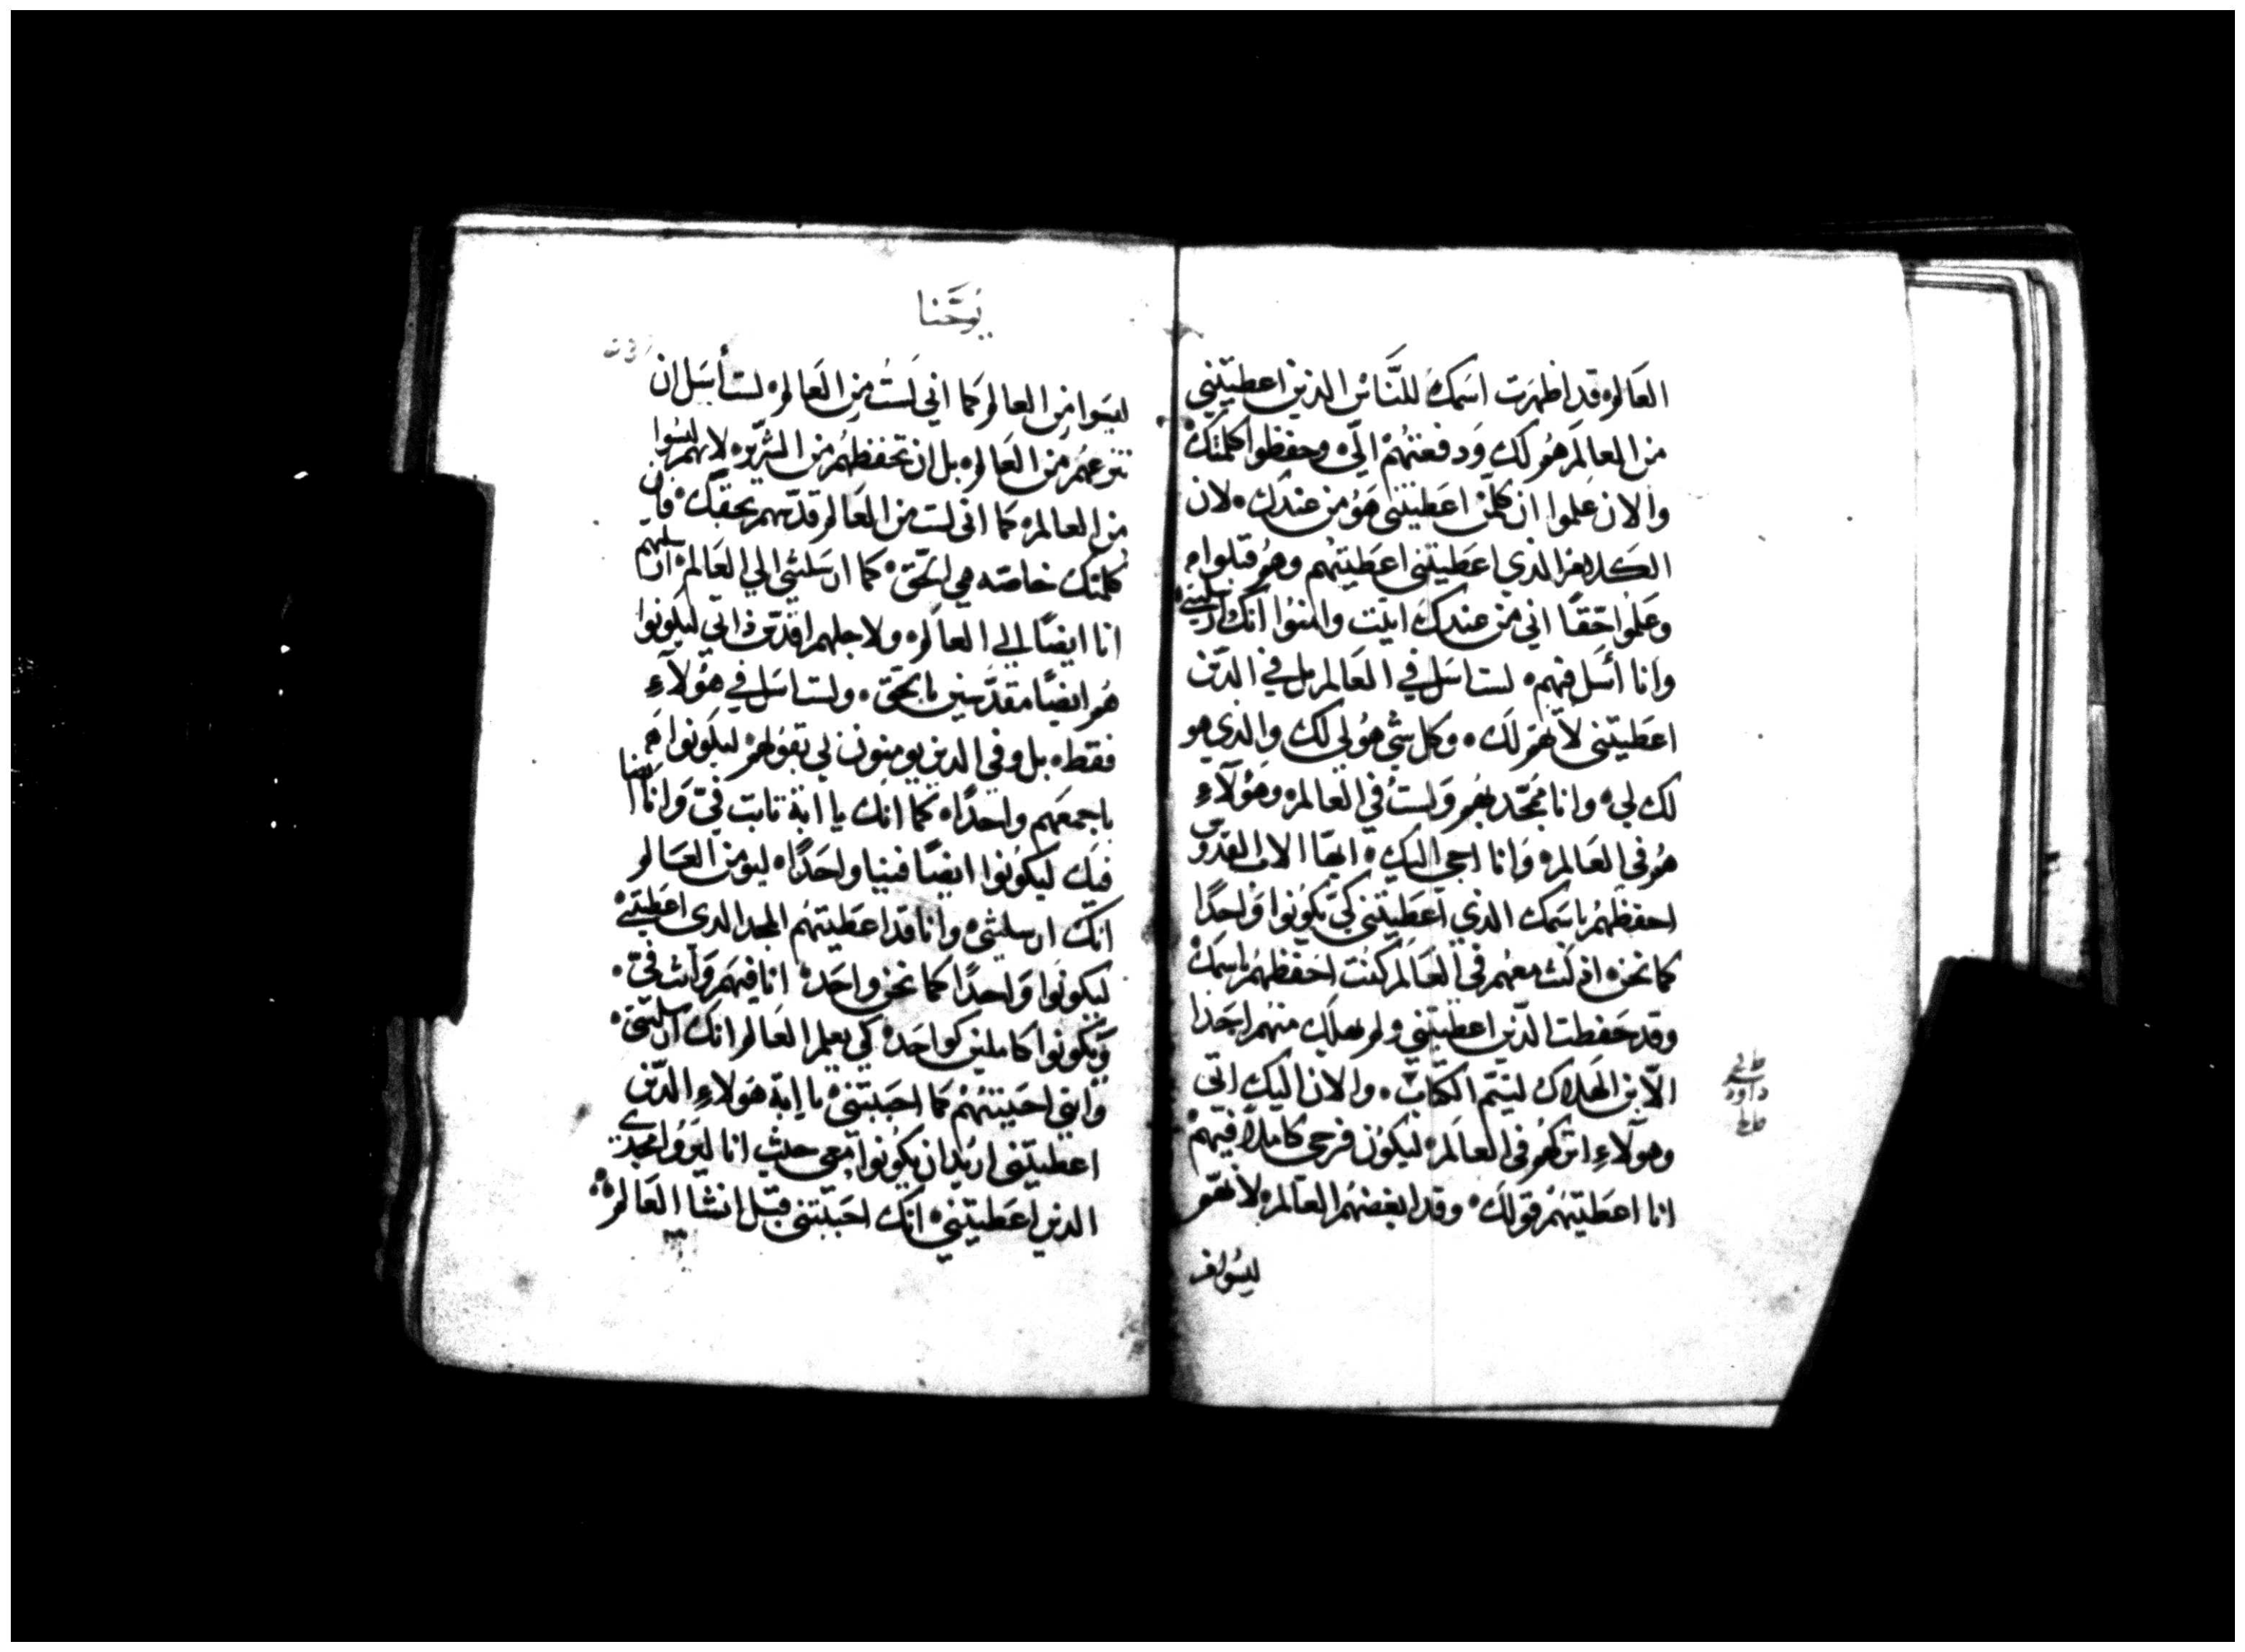 العالم، قد اظهرت اسمك للناس الذين اعطيتني
من العالم هم لك ودفعتهم الي، وحفظوا كلمتك،
والان علموا ان كلمن اعطيتني هو من عندك، لان
الكلام الذي اعطيتني اعطيتهم وهم قبلوا،
وعلموا حقا اني من عندك اتيت وامنوا انك ارسلتني،
وانا أسل فيهم، لست اسل في العالم بل في الذين
اعطيتني لانهم لك، وكل شي هو لي لك والذي هو
لك لي، وانا ممجد بهم ولست في العالم، وهولآءِ
هم في العالم، وانا اجي اليك، ايها الاب القدوس
احفظهم باسمك الذي اعطيتني كي يكونوا واحدًا
كما نحن، اذ كنت معهم في العالم كنت احفظهم باسمك
وقد حفظت الذين اعطيتني ولم يهلك منهم احدا
الا ابن الهلاك ليتم الكتاب، والان اليك اتي
وهولآءِ اتركهم في العالم، ليكون فرحي كاملا فيهم
انا اعطيتهم قولك، وقد ابغضهم العالم، لانهم
ليسوا من
داود
يوحنا
ليسوا من العالم كما اني لستُ من العالم، لست أسَل ان
تنزعهم من العالم، بل ان تحفظهم من الشرير، لانهم ليسوا
من العالم، كما اني لست من العالم قدسهم بحقك، فان
كلمتك خاصه هي الحق، كما ارسلتني الي العالم، ارسلتهم
انا ايضًا الي العالم، ولاجلهم اقدس ذاتي ليكونوا
هم ايضًا مقدسين بالحق، ولست اسَل في هولآءِ
فقط، بل وفي الذين يومنون بي بقولهم، ليكونوا هم
باجمعهم واحدًا، كما انك يا ابة ثابت فيّ وانا ايضا
فيك ليكونوا ايضًا فينا واحدًا، ليومن العالم
انك ارسلتني، وانا قد اعطيتهم المجد الذي اعطيتني،
ليكونوا واحدًا كما نحن واحد، انا فيهم وانت فيّ،
ويكونوا كاملين كواحد، كي يعلم العالم انك ارسلتني،
وانني احببتهم كما احببتني، يا ابة هولاءِ الذين
اعطيتني اريد ان يكونوا معي حيث انا ليروا مجدي
الذي اعطيتني، انك احببتني قبل انشا العالم،